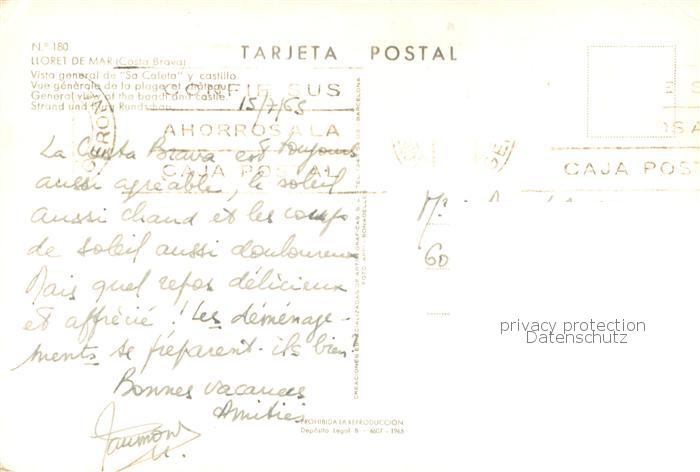 N.º 180
LLORET DE MAR (Costa Brava)
Vista general de "Sa Caleta" y castillo.
Vue générale de la plage et château.
General view of the beach and castle.
Strand und Burg Rundschau.
TARJETA POSTAL
CONFIE SUS
AHORROS A LA
CAJA POSTAL
GERONA
15/7/65
La Costa Brava est toujours
aussi agréable, le soleil
aussi chaud et les coups
de soleil aussi douloureux
Mais quel repos délicieux
et apprécié ! Les déménage-
ments se préparent-ils bien?
Bonnes vacances
Amitiés
PROHIBIDA LA REPRODUCCIÓN
Depósito Legal B - 6607 - 1965
CAJA POST
60
privacy protection
Datenschutz